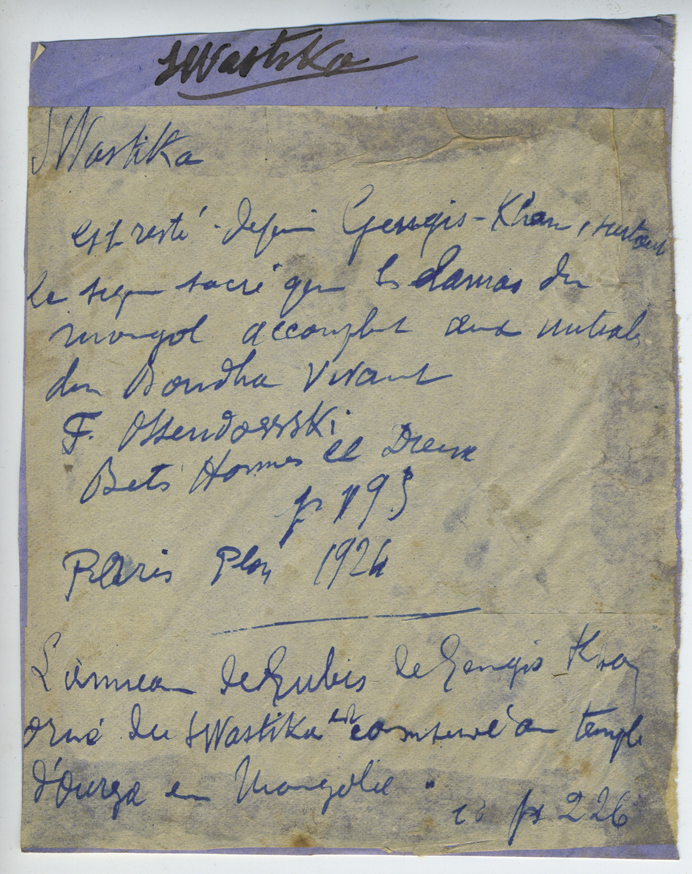 SWastika
SWastika
est resté depuis Gengis-Khan, surtout
le signe sacré que les Lamas du
mongol accomplit aux
du Bouddha Vivant
F. Ossendowski
Bets Hommes et Dieux
p 193
Paris Plon 1924
L'anneau de Rubis de Gengis Kan
orné du SWastika est conservé au temple
d'Ourga en Mongolie "
p 226